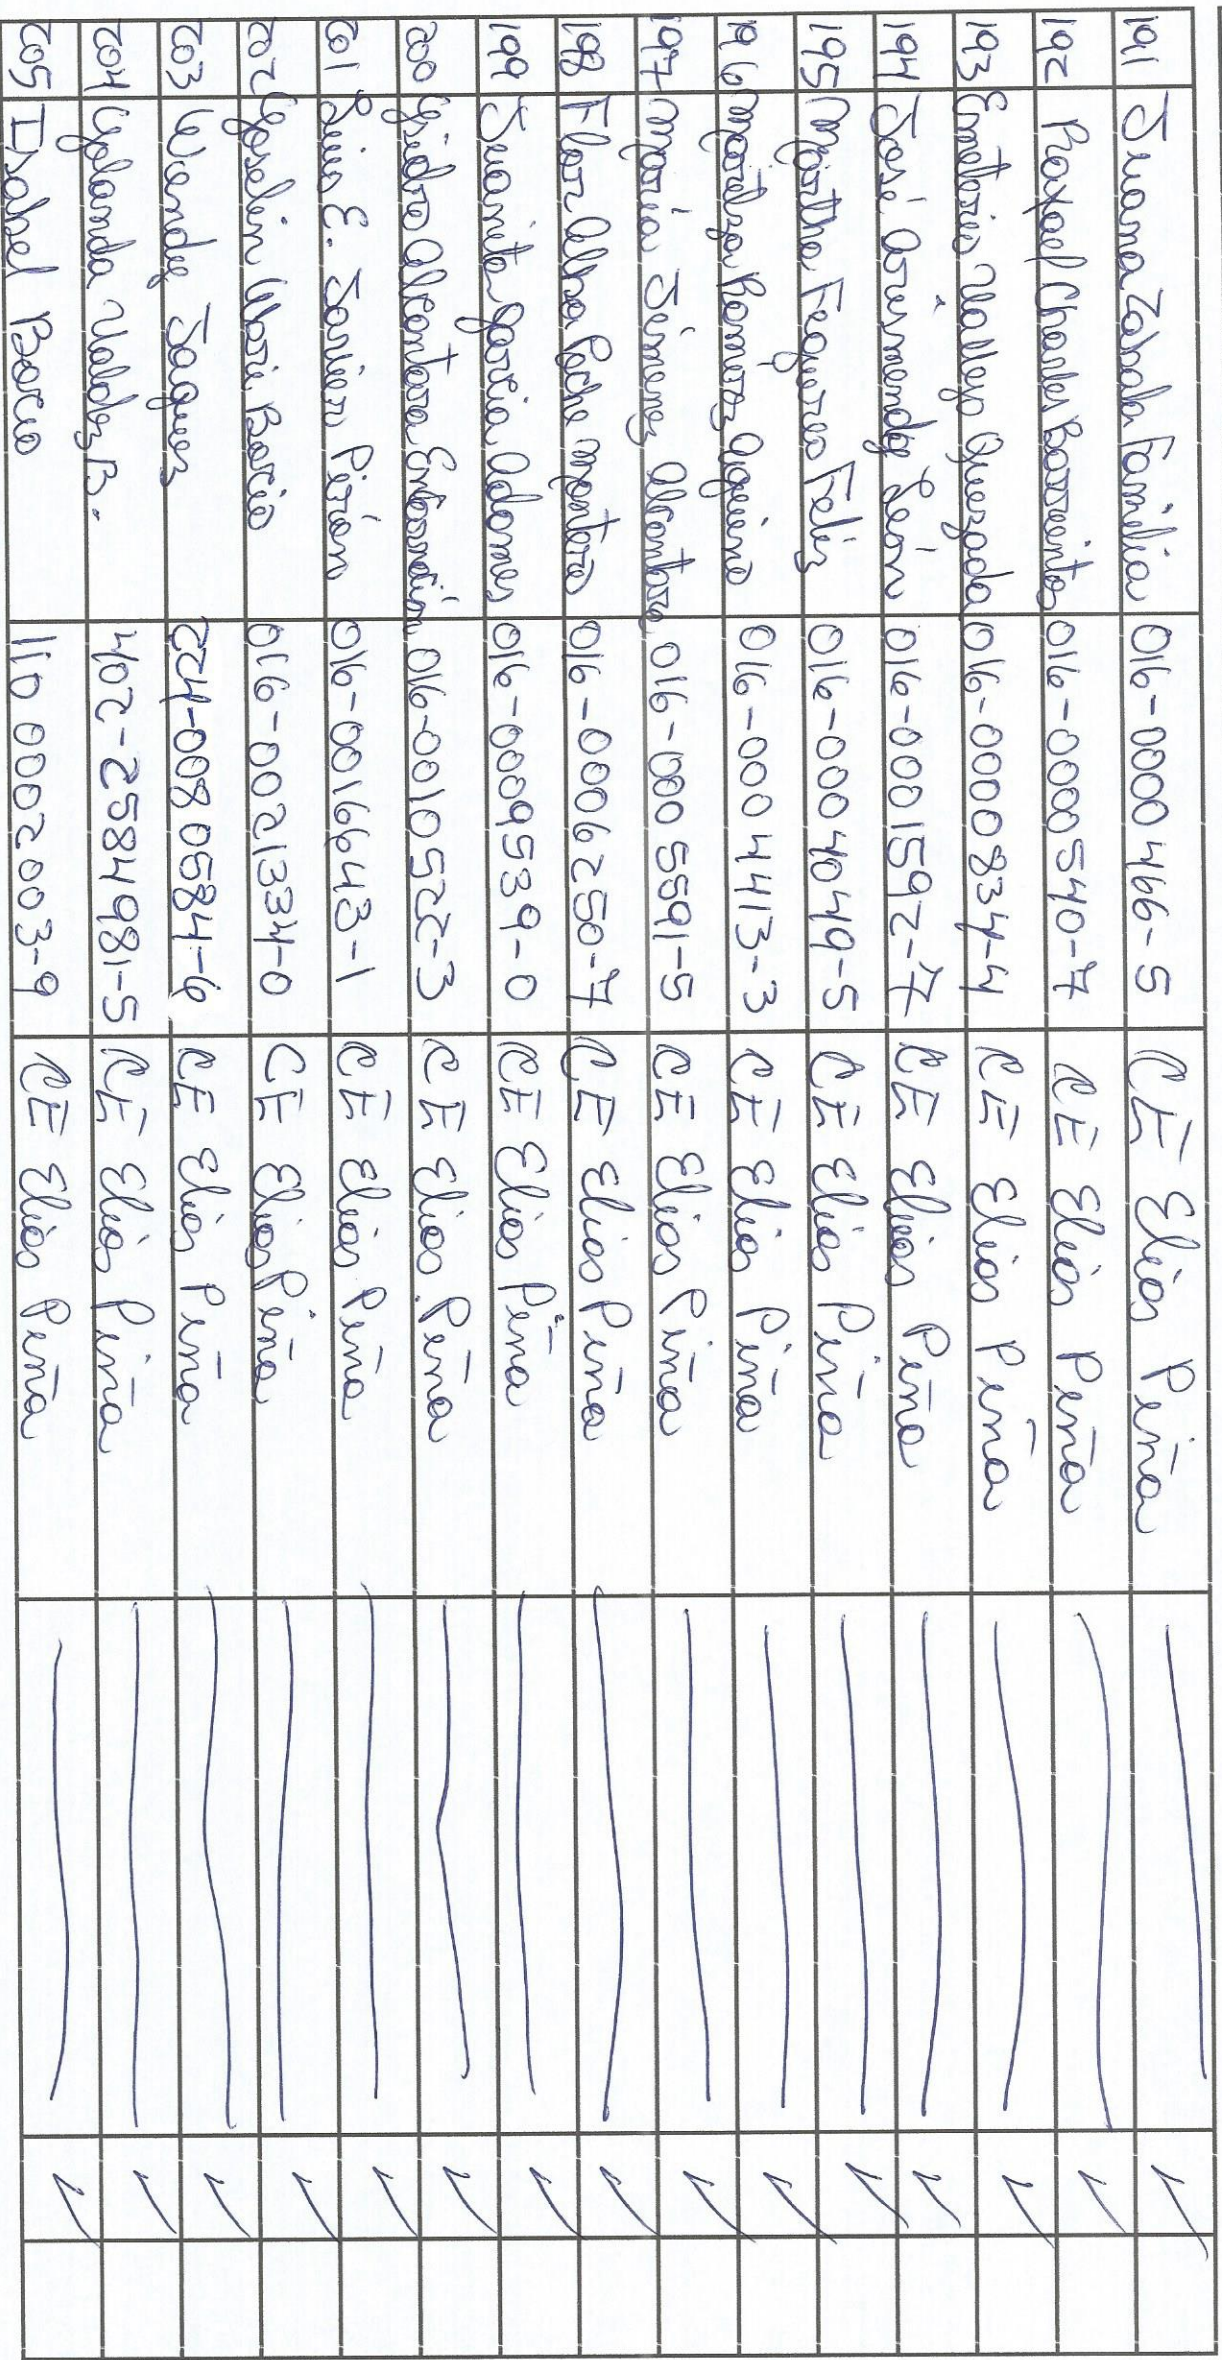 191 Juana Zabala Familia 016-0000466-5 CE Elias Piña ✓
192 Raxael Charles Barrientos 016-0000540-7 CE Elias Piña ✓
193 Emeterio Vallejo Quezada 016-0000834-4 CE Elias Piña ✓
194 José Arismendy León 016-0001592-7 CE Elias Piña ✓
195 Martha Feguereo Feliz 016-0004049-5 CE Elias Piña ✓
196 Maritza Ramirez Aquino 016-0004413-3 CE Elias Piña ✓
197 María Jimenez Alcantara 016-0005591-5 CE Elias Piña ✓
198 Flor Alba Poche Montero 016-0006250-7 CE Elias Piña ✓
199 Juanita Garcia Adames 016-0009539-0 CE Elias Piña ✓
200 Ysidro Alcantara Encarnación 016-0010522-3 CE Elias Piña ✓
201 Luis E. Pirón 016-0016643-1 CE Elias Piña ✓
202 Yoselin Marie Bocio 016-0021334-0 CE Elias Piña ✓
203 Wendy Jaquez 224-0080584-6 CE Elias Piña ✓
204 Yolanda Valdez B. 402-2584981-5 CE Elias Piña ✓
205 Isabel Bocio 110 0002003-9 CE Elias Piña ✓